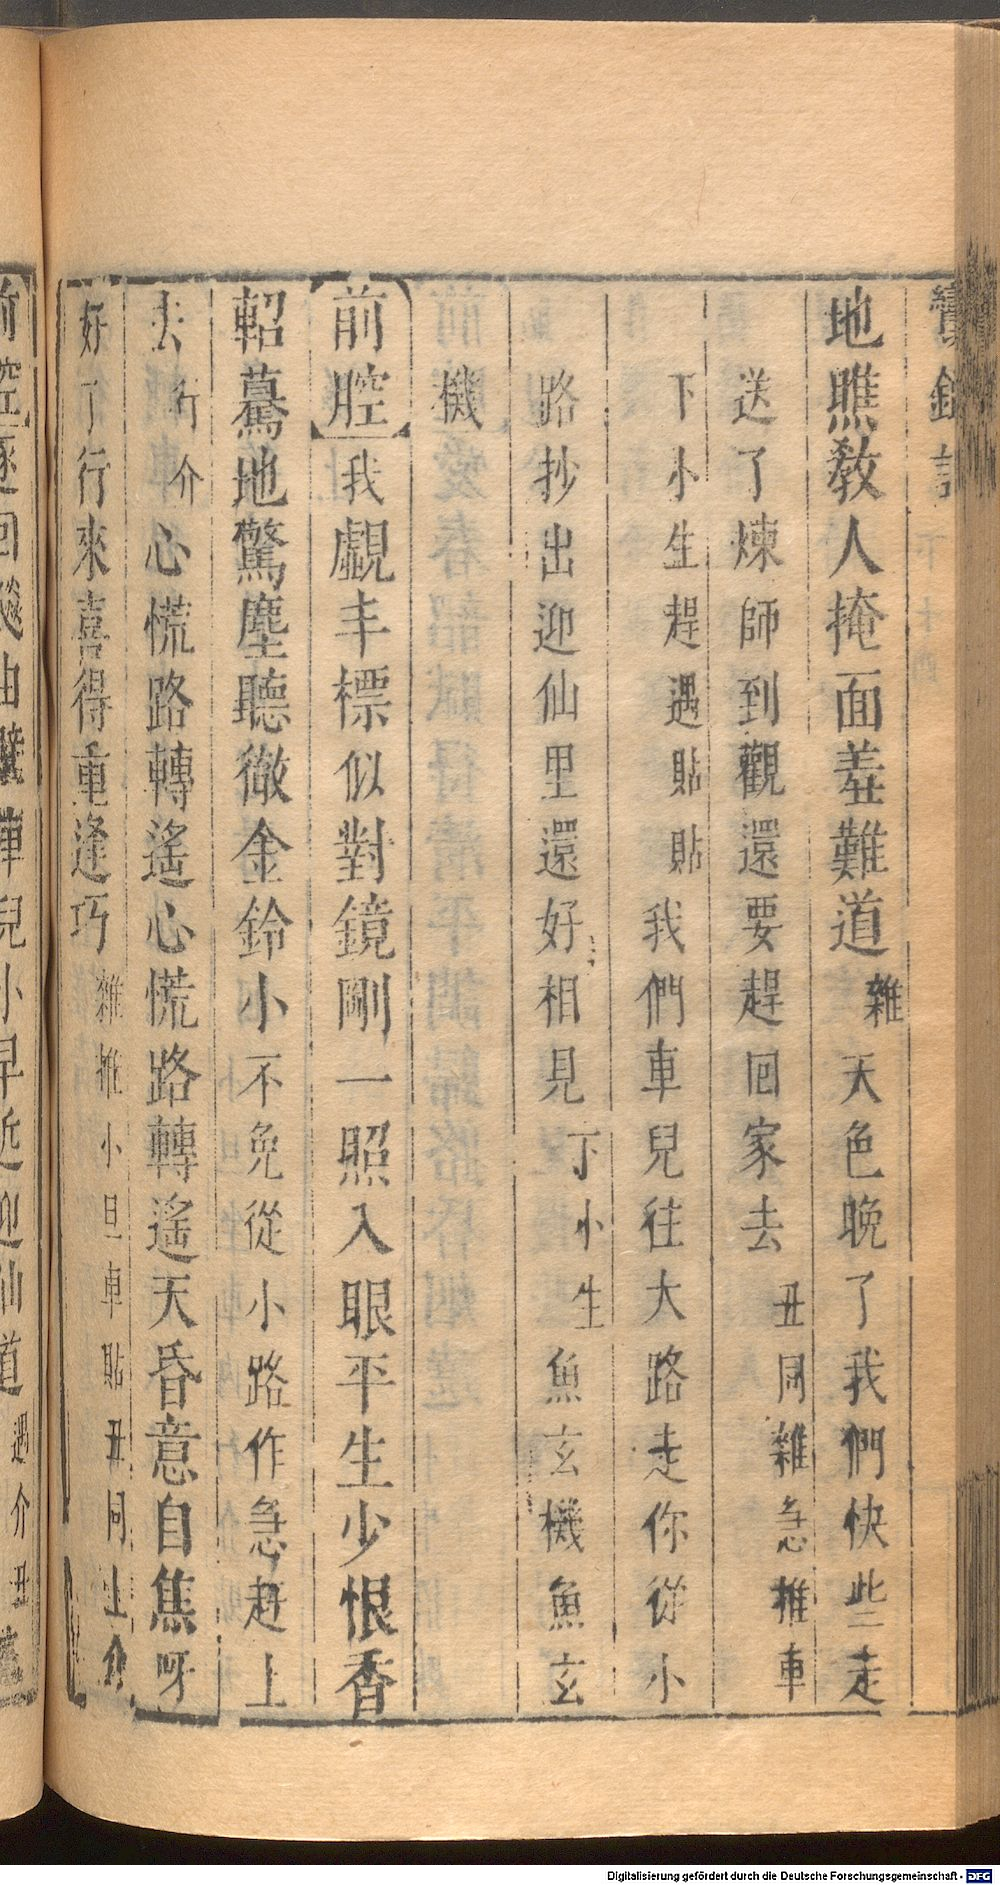 鸞鎞記
地瞧教人掩面羞難道雜天色晚了我們快些走
送了煉師到觀還要趕回家去丑同雜急推車
下小生趕遇貼貼我們車兒往大路走你從小
路抄出迎仙里還好相見下小生魚玄機魚玄
機
前腔我覷丰標似對鏡剛一照入眼平生少恨香
軺驀地驚塵聽徹金鈴小不免從小路作急趕上
去行介心慌路轉遙心慌路轉遙天昏意自焦呀
好了行來喜得重逢巧雜推小旦車貼丑同上介
前腔逐回飈油壁車兒小早近迎仙道遇介丑
Digitalisierung gefördert durch die Deutsche Forschungsgemeinschaft - DFG